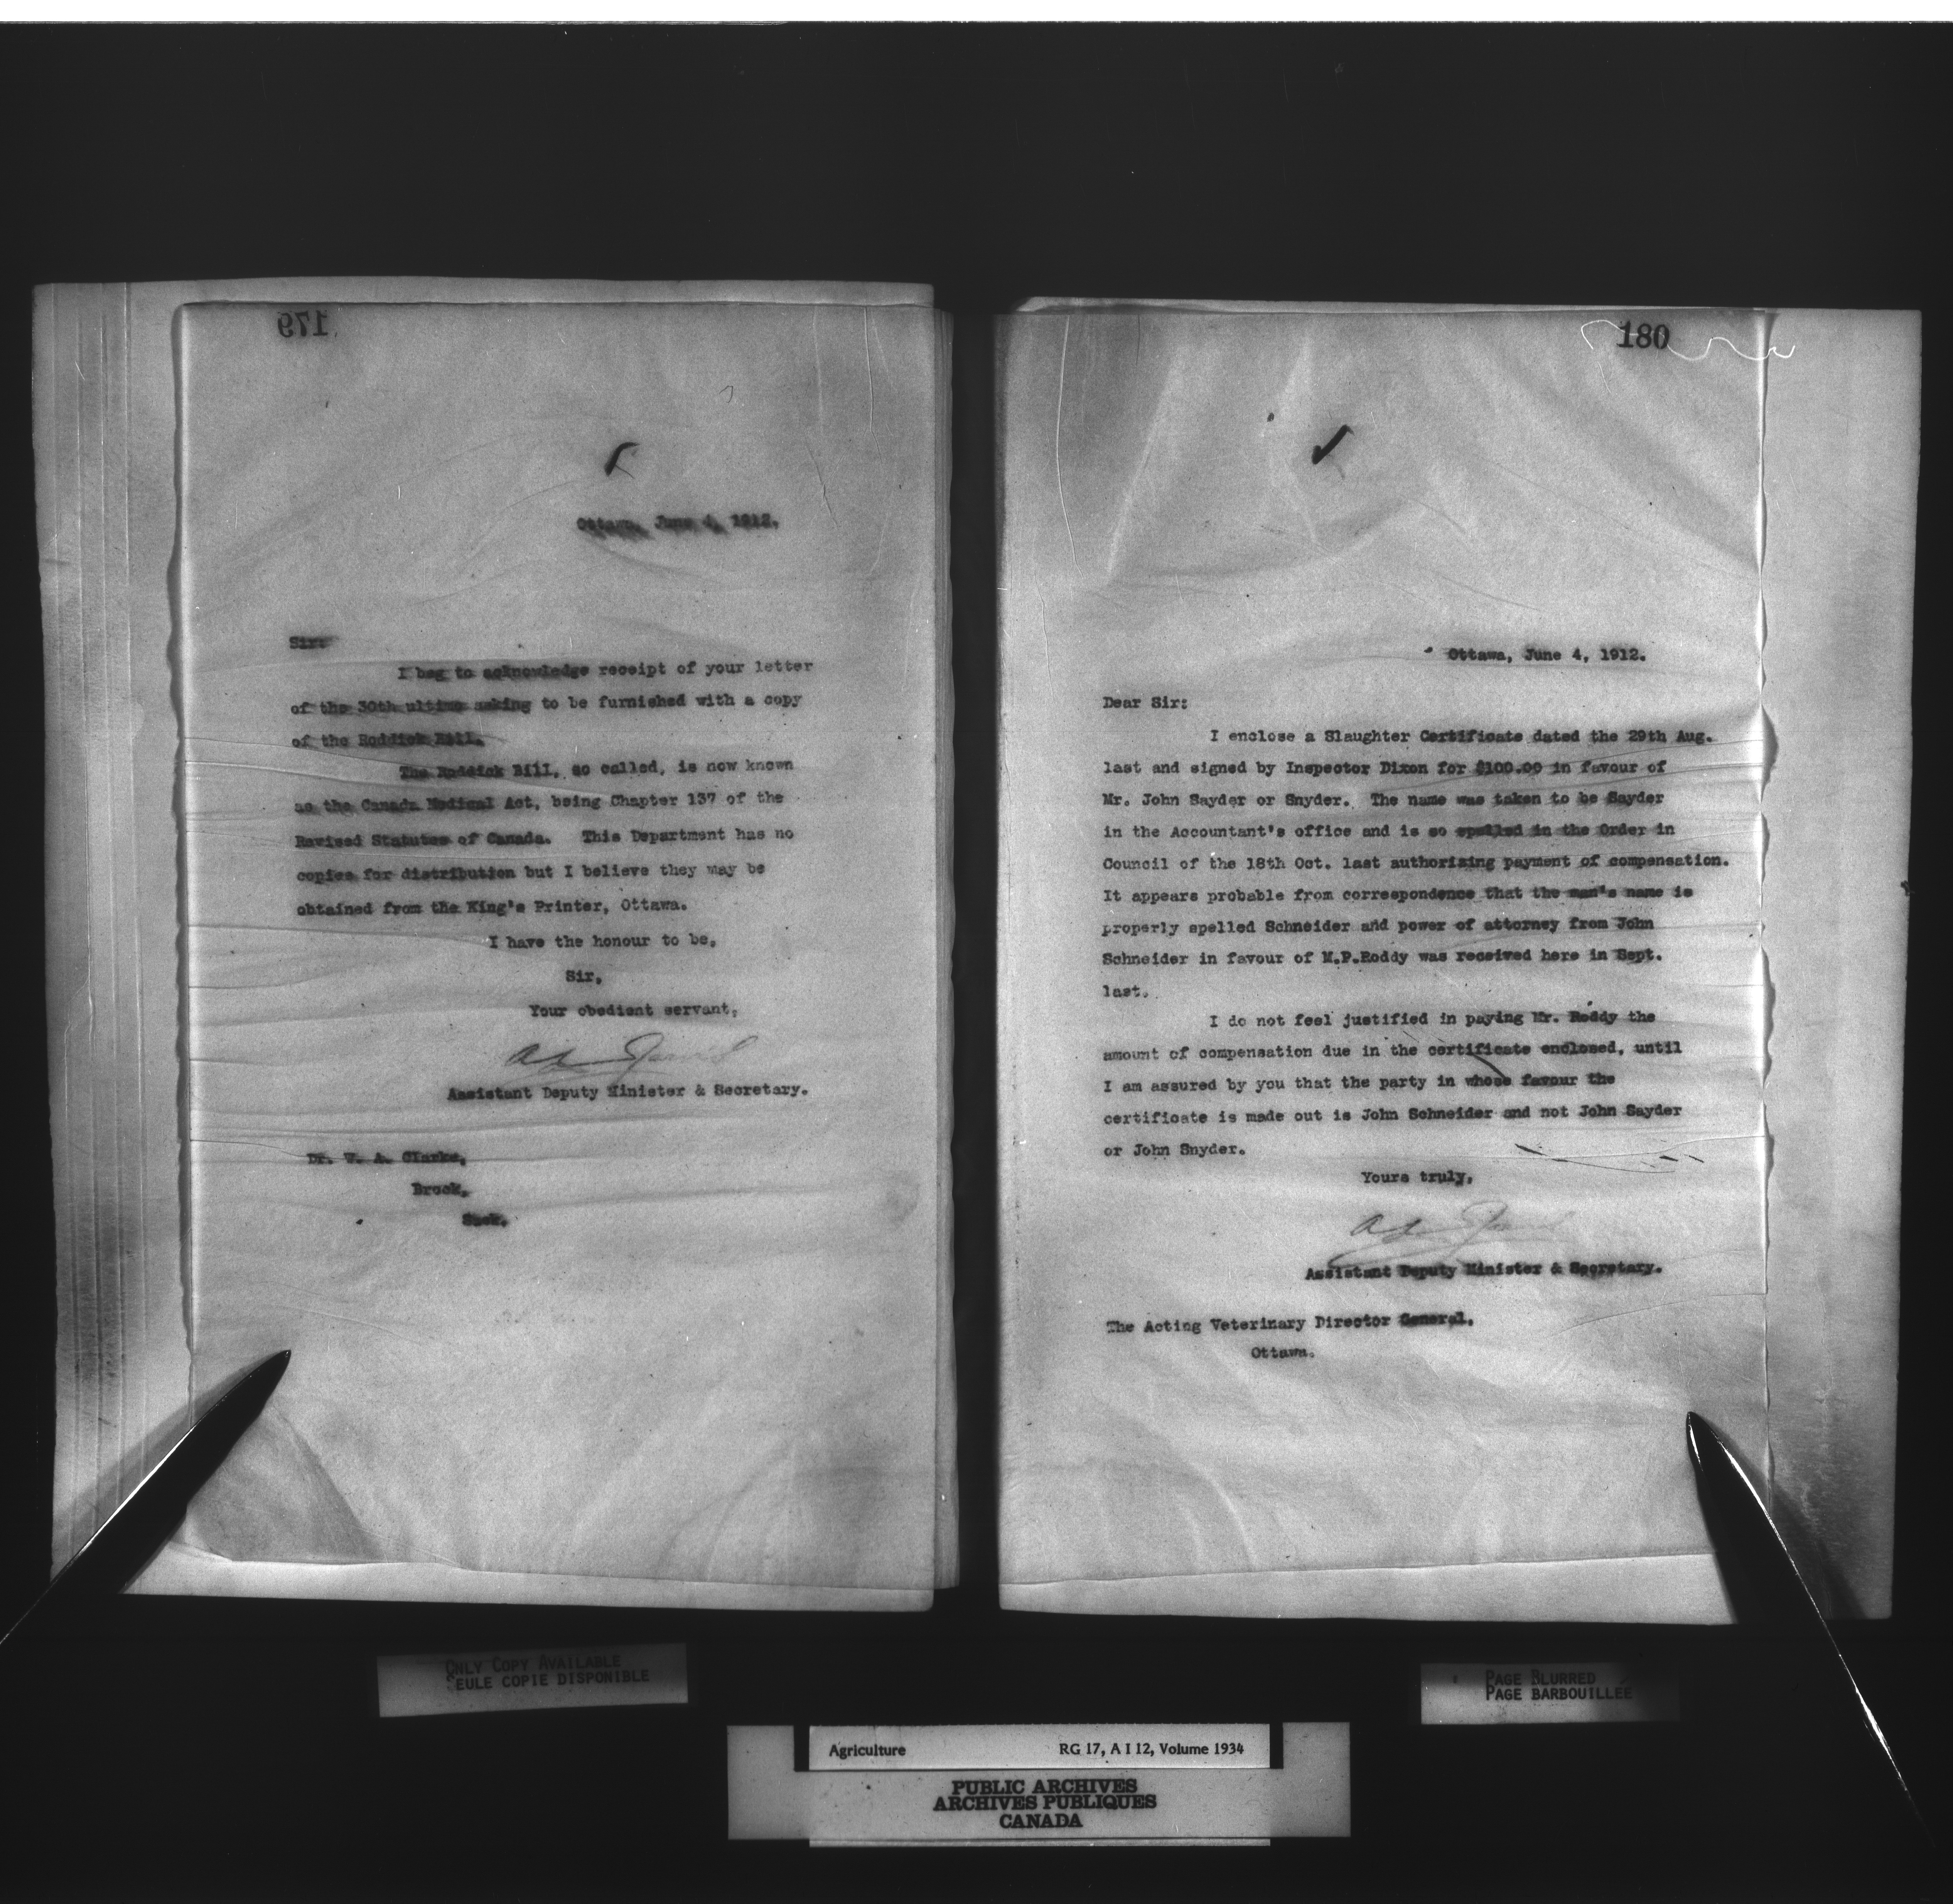 179
Ottawa, June 4, 1912.
Sir:
I beg to acknowledge receipt of your letter
of the 30th ultimo asking to be furnished with a copy
of the Roddick Bill.
The Roddick Bill, so called, is now known
as the Canada Medical Act, being Chapter 137 of the
Revised Statutes of Canada. This Department has no
copies for distribution but I believe they may be
obtained from the King's Printer, Ottawa.
I have the honour to be,
Sir,
Your obedient servant,
Assistant Deputy Minister & Secretary.
Dr. W. A. Clarke,
Brock,
Sask.
180
Ottawa, June 4, 1912.
Dear Sir:
I enclose a Slaughter Certificate dated the 29th Aug.
last and signed by Inspector Dixon for $100.00 in favour of
Mr. John Sayder or Snyder. The name was taken to be Sayder
in the Accountant's office and is so spelled in the Order in
Council of the 18th Oct. last authorizing payment of compensation.
It appears probable from correspondence that the man's name is
properly spelled Schneider and power of attorney from John
Schneider in favour of M.P.Roddy was received here in Sept.
last.
I do not feel justified in paying Mr. Roddy the
amount of compensation due in the certificate enclosed, until
I am assured by you that the party in whose favour the
certificate is made out is John Schneider and not John Sayder
or John Snyder.
Yours truly,
Assistant Deputy Minister & Secretary.
The Acting Veterinary Director General.
Ottawa.
ONLY COPY AVAILABLE
SEULE COPIE DISPONIBLE
PAGE BLURRED
PAGE BARBOUILLEE
Agriculture RG 17, A I 12, Volume 1934
PUBLIC ARCHIVES
ARCHIVES PUBLIQUES
CANADA